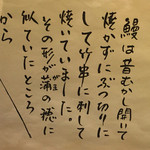 鰻は昔むかし開いて
焼かずにぶつ切りに
して竹串に刺して
焼いていました。
その形が蒲の穂に
がま
似ていたところ
から